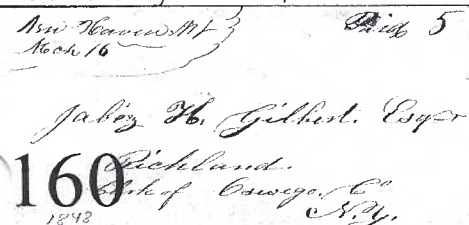 New Haven Mt
Mch 16
Paid 5
Jabez H. Gilbert. Esqr
Richland.
160
Clerk of Oswego. Co
N.Y.
1848